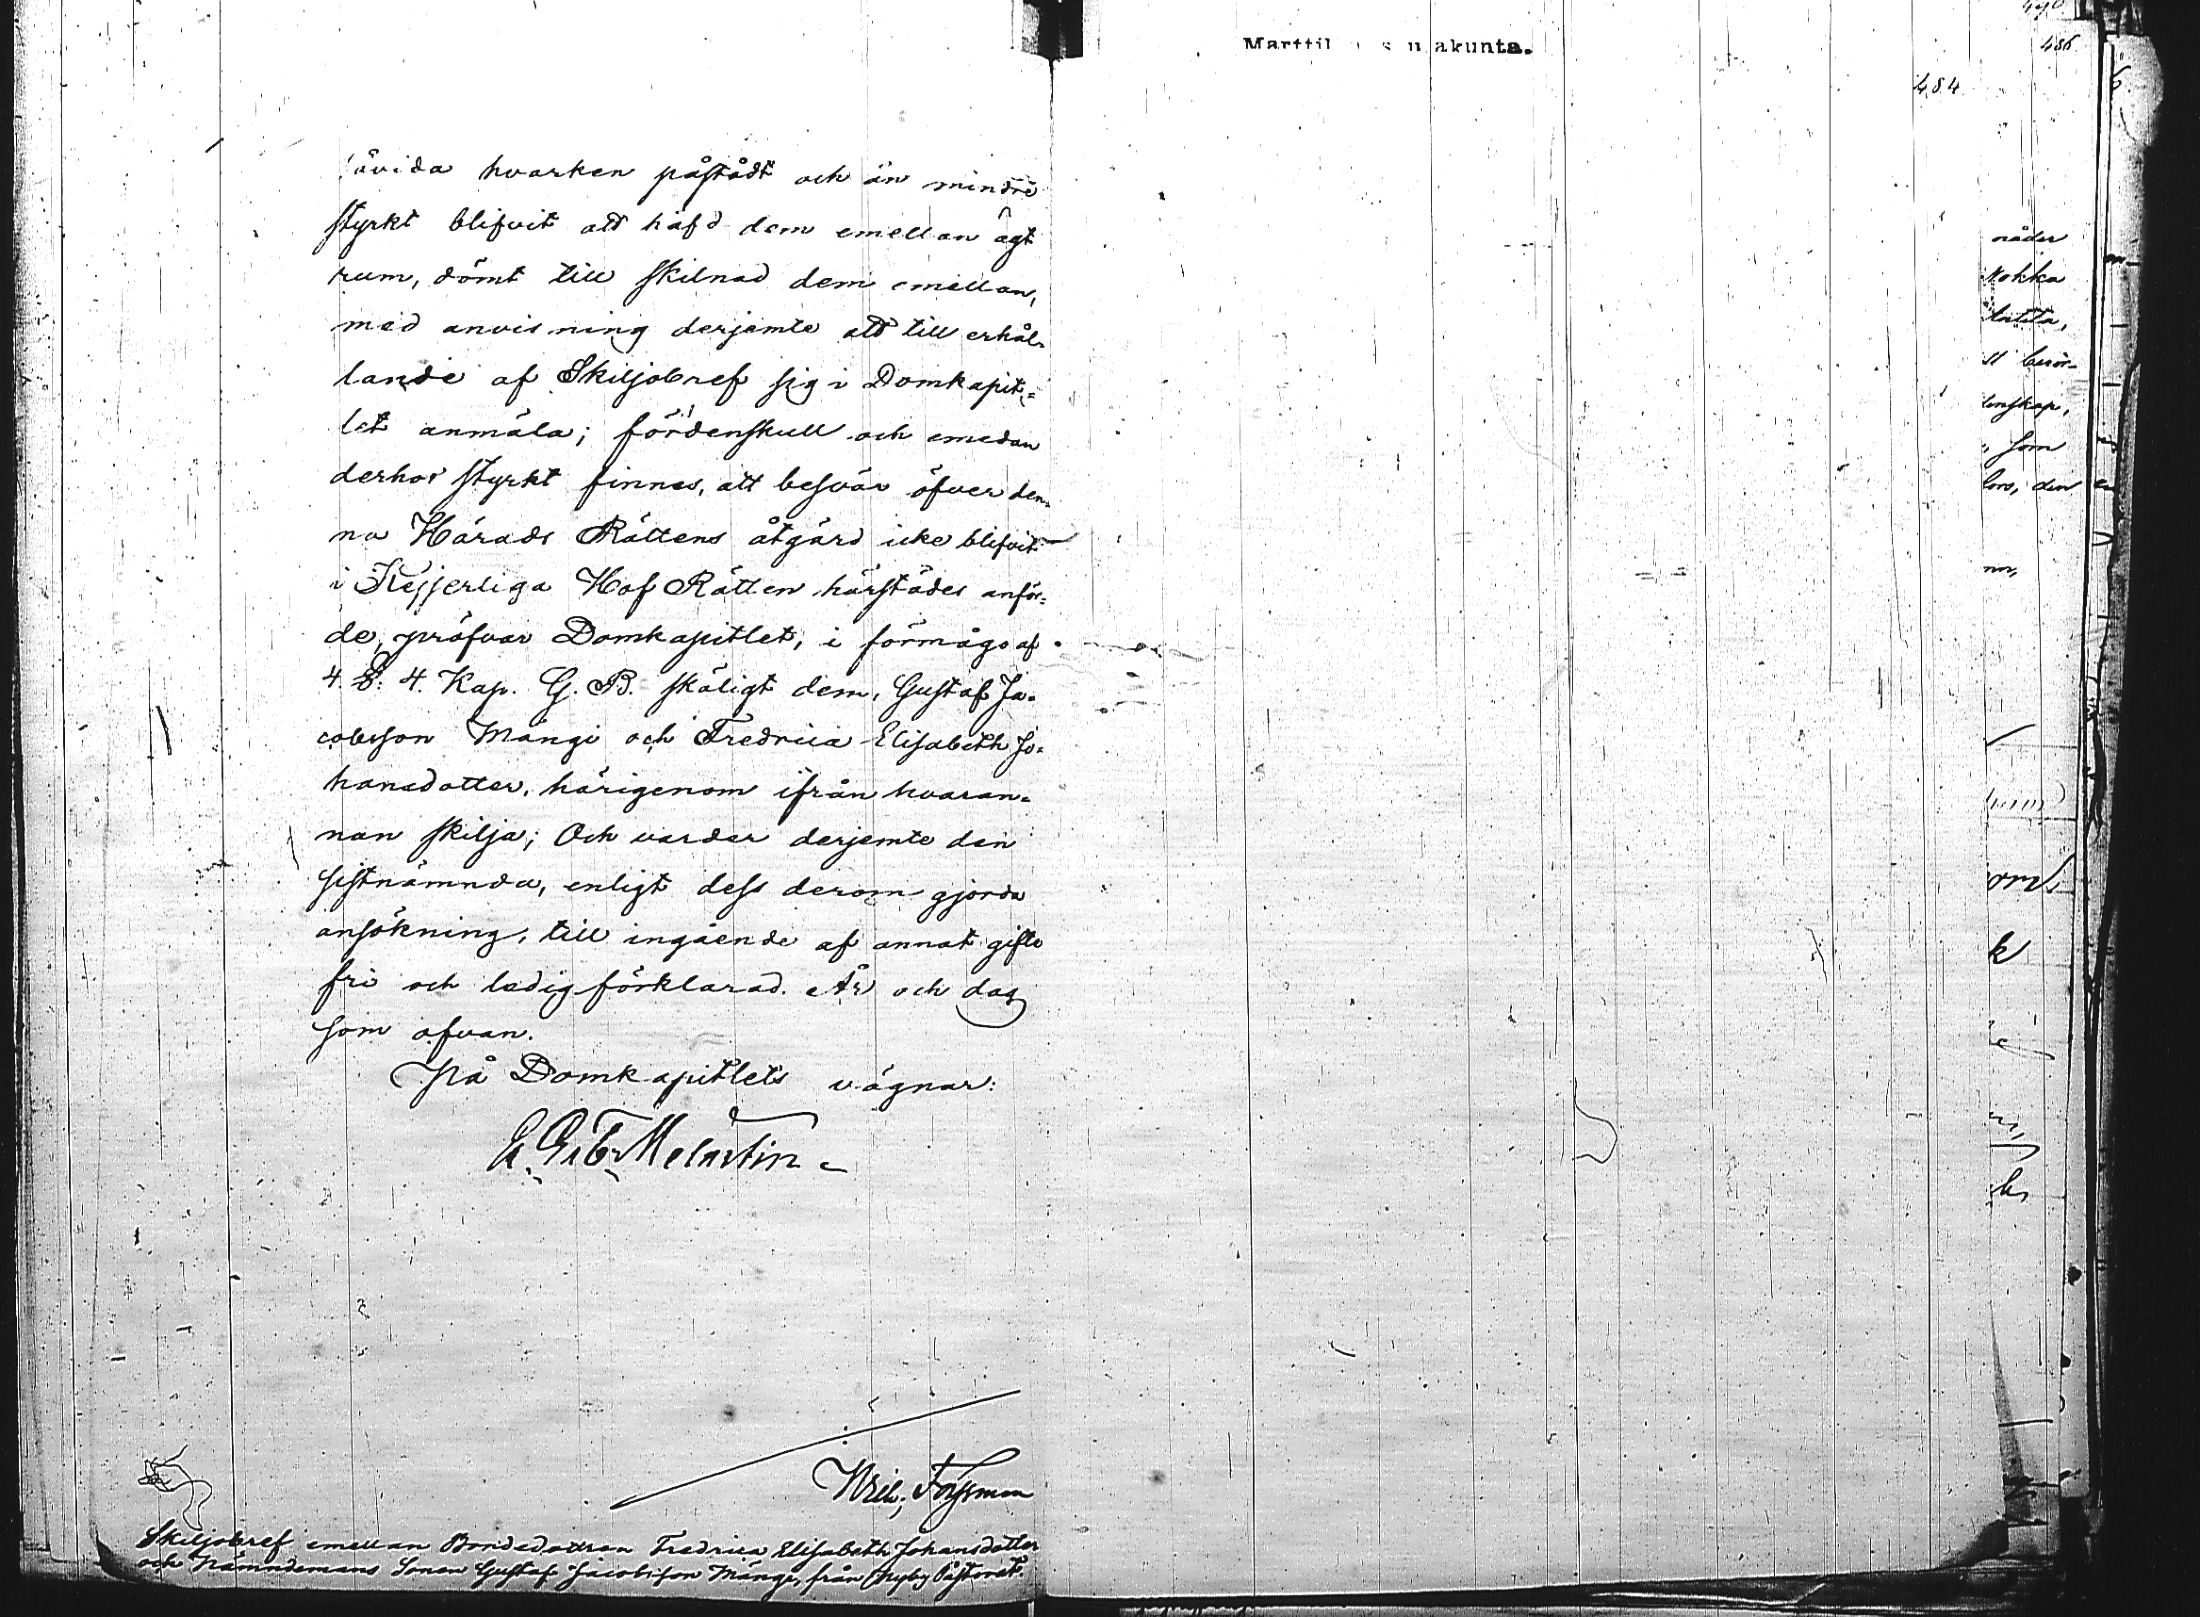 såvida hvarken påstådt och än mindre
styrkt blifvit att häfd dem emellan ägt
rum, dömt till skilnad dem emellan,
med anvisning derjemte att till erhål-
lande af Skiljobref sig i Domkapit=
let anmäla; fördenskull och emedan
derhos styrkt finnes, att besvär öfver den-
na Härads Rättens åtgärd icke blifvit
i Kejserliga Hof Rätten härstädes anför=
de, pröfvar Domkapitlet, i förmågo af
4. §. 4. Kap. G. B. skäligt dem, Gustaf Ja-
cobsson Mängi och Fredrica Elisabeth Jo=
hansdotter, härigenom ifrån hvaran=
nan skilja; Och varder derjemte den
sistnämnda, enligt dess derom gjorda
ansökning, till ingående af annat gifte
fri och ledig förklarad. År och dag
som ofvan.
På Domkapitlets vägnar:
Melartin
Forssman
Skiljobref emellan Bondedottren Fredrica Elisabeth Johansdotter
och Nämndemans Sonen Gustaf Jacobsson Mängi, från Nyby Pastorat.
Marttil s u akunta.
490
486
484
nåder
Nokka
enskap,
som
den